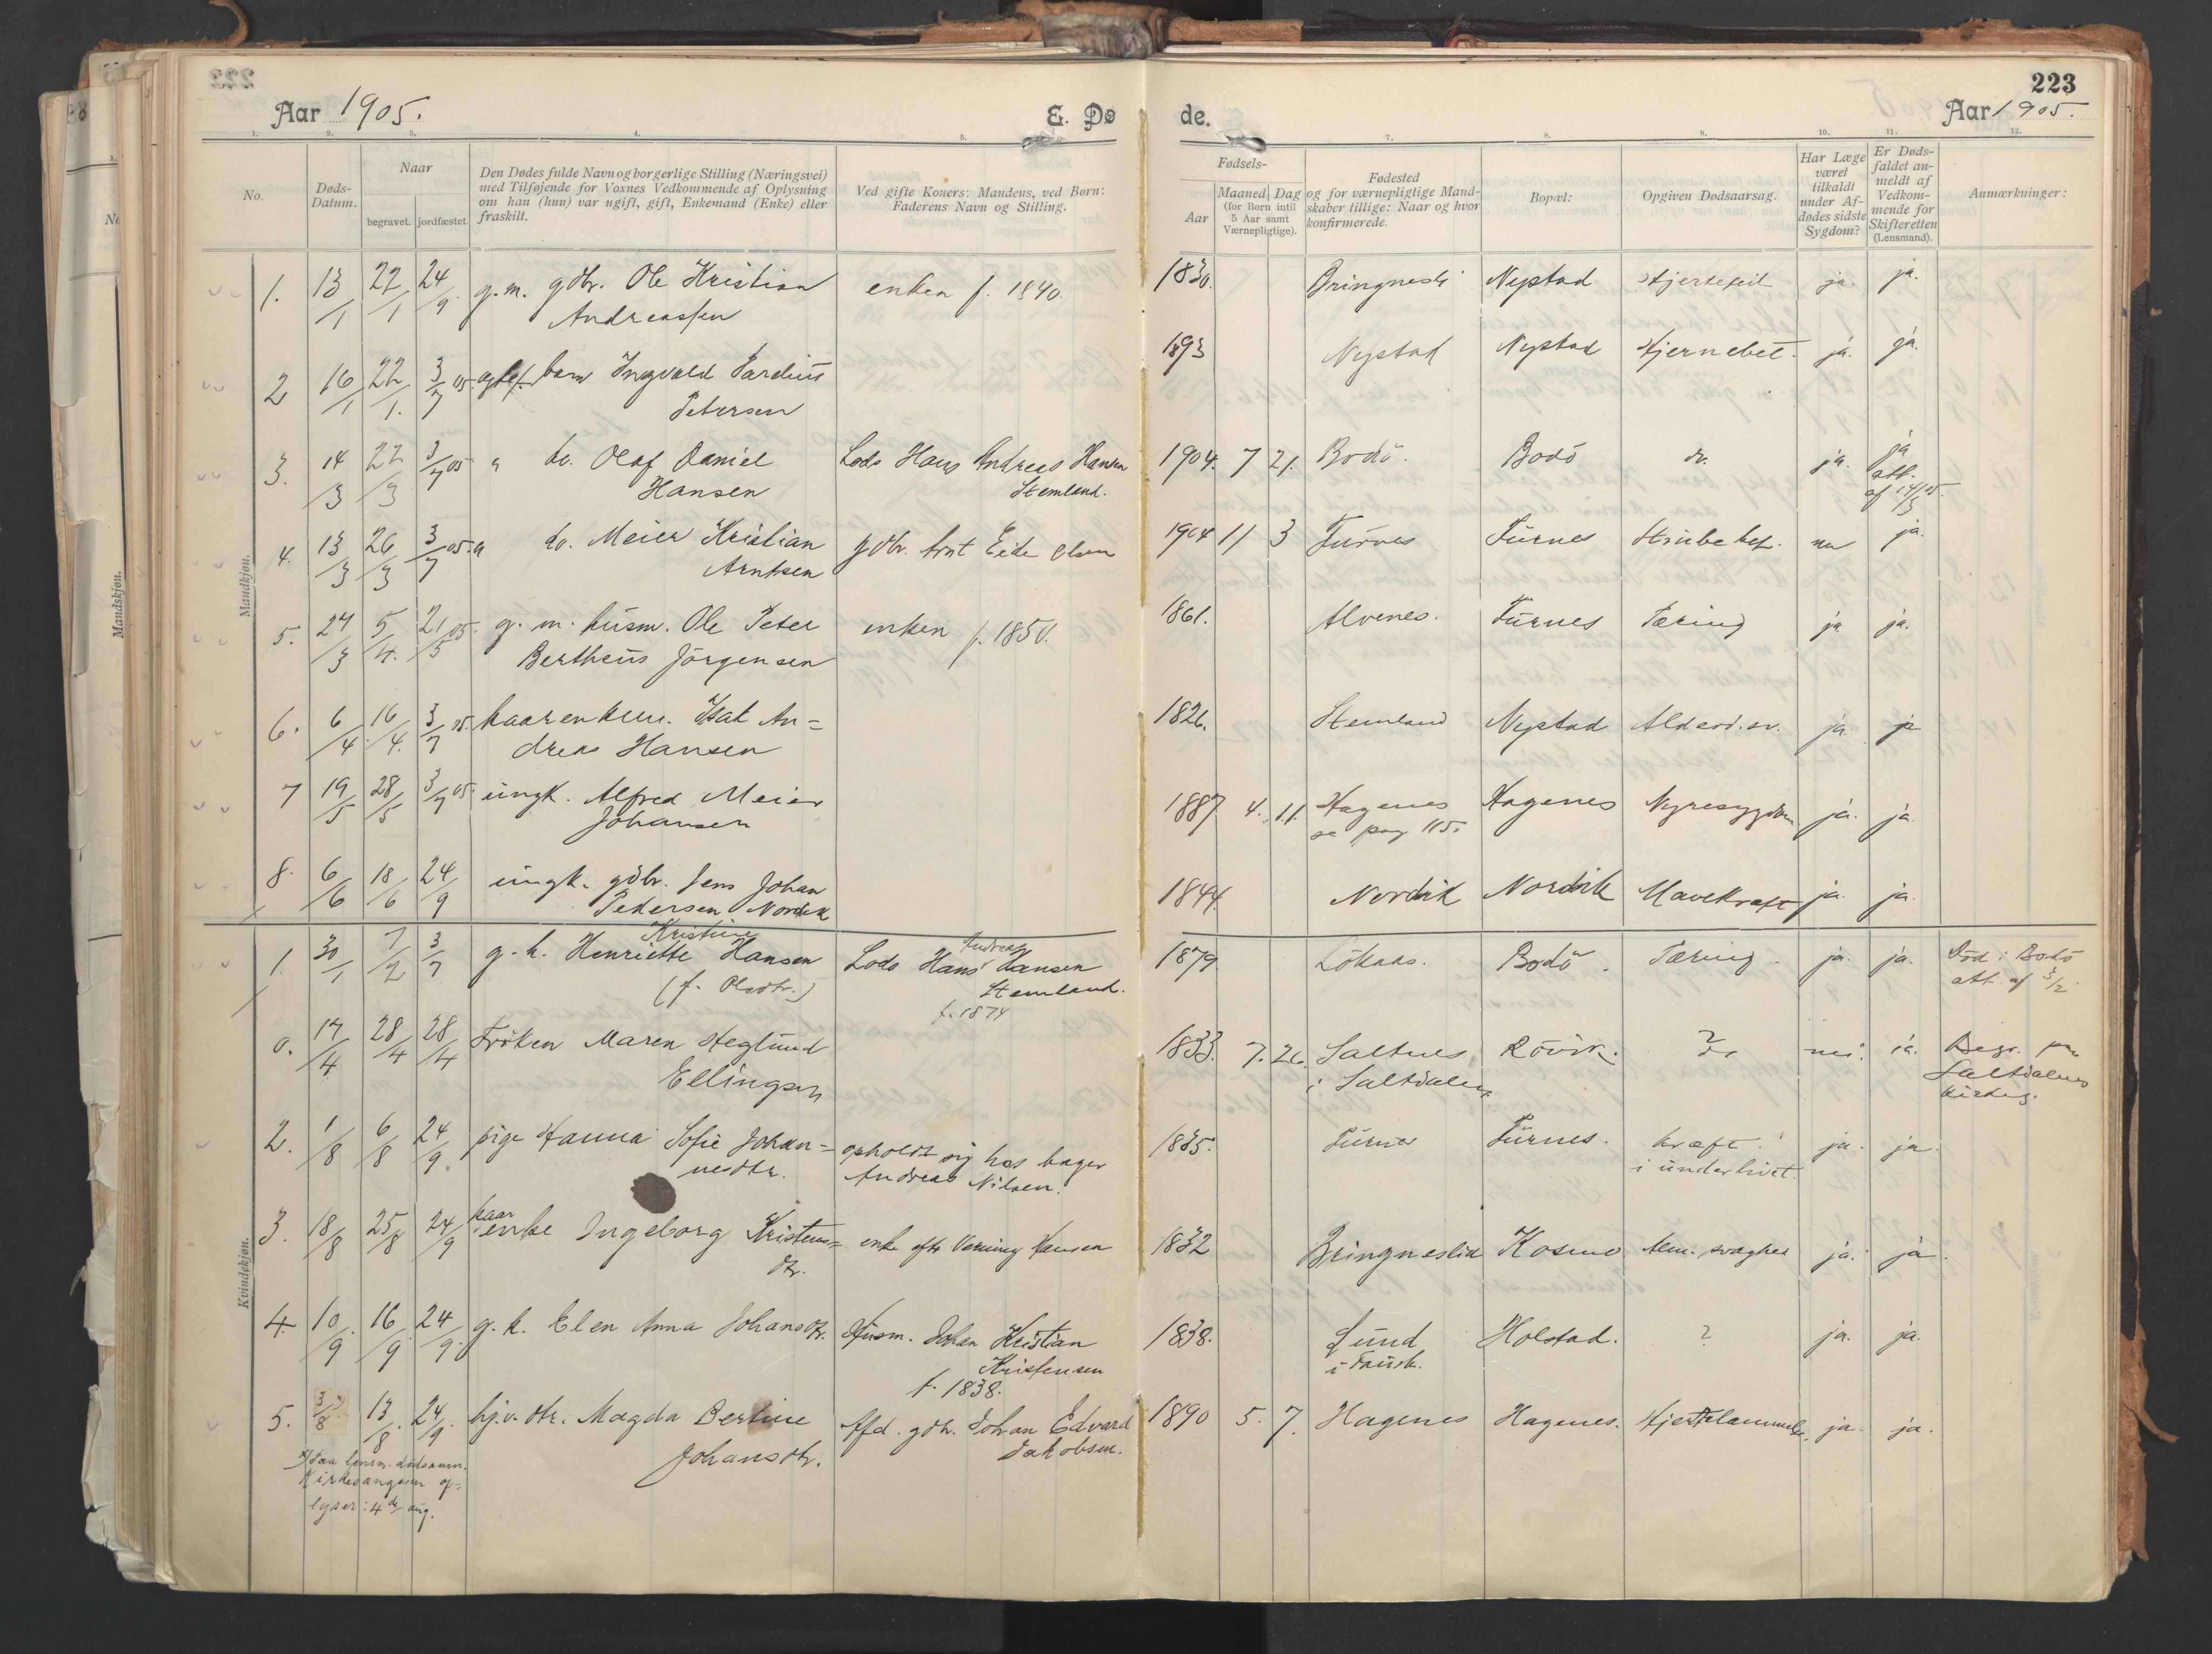 223
Aar 1905.
E. Dø
de.
Aar 1905.
1. 2. 3. 4. 5. 7. 8. 9. 10. 11. 12.
No.
Døds-
Datum.
Naar
begravet. jordfæstet.
Den Dødes fulde Navn og borgerlige Stilling (Næringsvei)
med Tilføjende for Voxnes Vedkommende af Oplysning
om han (hun) var ugift, gift, Enkemand (Enke) eller
fraskilt.
Ved gifte Koners: Mandens, ved Børn:
Faderens Navn og Stilling.
Fødsels-
Aar
Maaned Dag
(for Børn intil
5 Aar samt
Værnepligtige).
Fødested
og for værnepligtige Mand-
skaber tillige: Naar og hvor
konfirmerede.
Bopæl:
Opgiven Dødsaarsag.
Har Læge
været
tilkaldt
under Af-
dødes sidste
Sygdom?
Er Døds-
faldet an-
meldt af
Vedkom-
mende for
Skifteretten
(Lensmand).
Anmærkninger:
Mandkjøn.
1. 13/1 22/1 24/9. g.m. gdbr. Ole Kristian enken f. 1840. 1830. Bringnesli Nystad Hjertefeil ja. ja.
Andreassen
2 16/1 22/1. 3/7 05. barn Ingvald Pardius 1893 Nystad Nystad Hjernebet. ja. ja.
Petersen
3. 14/3 22/3 3/7 05 " do. Olaf Daniel Lods Hans Andreas Hansen 1904. 7 21. Bodö. Bodö do. ja. ja
Hansen Stemland. att.
af 14/3 05.
4. 13/3 26/3 3/7 05. " do. Meier Kristian gdbr. Arnt Eide Olsen 1904 11 3 Furnes Furnes Strubehet. nei ja.
Arntsen
5. 24/3 5/4. 21/5 05. g. m. husm. Ole Peter enken f. 1850. 1861. Alvenes. Furnes Tæring ja ja.
Bertheus Jörgensen
6. 6/4 16/4. 3/7 05. kaarenkem. Isak An= 1826. Stemland Nystad Alderd.sv. ja. ja
dreas Hansen
7 19/5 28/5 3/7 05. ungk. Alfred Meier 1887. 4. 11. Hagenes Hagenes Nyresygdom ja. ja.
Johansen se pag 115.
8. 6/6 18/6 24/9 ungk. gdbr. Jens Johan 1844. Nordvik Nordvik Mavekræft ja. ja.
Pedersen Nordvik
Kvindekjøn.
Kristine Andreas
1. 30/1 7/2 3/7 g.k. Henriette Hansen Lods Hans Hansen 1879. Lökaas. Bodö. Tæring. ja. ja. Död i Bodö
(f. Olsdtr.) Stemland. att. af 3/2.
f. 1874
0. 17/4 28/4 28/4 Fröken Maren Heglund 1833. 7. 26. Saltnes Rövik. ? nei. ja. Begr. paa
Ellingsen i Saltdalen Saltdalens
kirkeg.
2. 1/8 6/8 24/9. pige Hanna Sofie Johan= opholdt sig hos bager 1835. Furnes Furnes. kræft ja. ja.
nesdtr. Andreas Nilsen. i underlivet.
kaar
3. 18/8 25/8 24/9 enke Ingeborg Kristens= enke efter Hansen 1832 Bringneslid Kosmo Alm. svaghed ja. ja.
dtr.
4. 10/9 16/9 24/9. g.k. Elen Anna Johansdtr. Husm. Johan Kristian 1838. Lund Holstad. ? ja. ja.
Kristensen i Fausk.
f. 1838.
5. 3/8 x) 13/8. 24/9. hj.v. dtr. Magda Bertine Afd. gdbr. Johan Edvard 1890 5. 7. Hagenes Hagenes. Hjertelammelse. ja. ja.
Johansdtr. Jakobsen.
x) Paa lensm. dødsanm.
Kirkesangeren op=
lyser: 4de aug.
Mandskjøn.